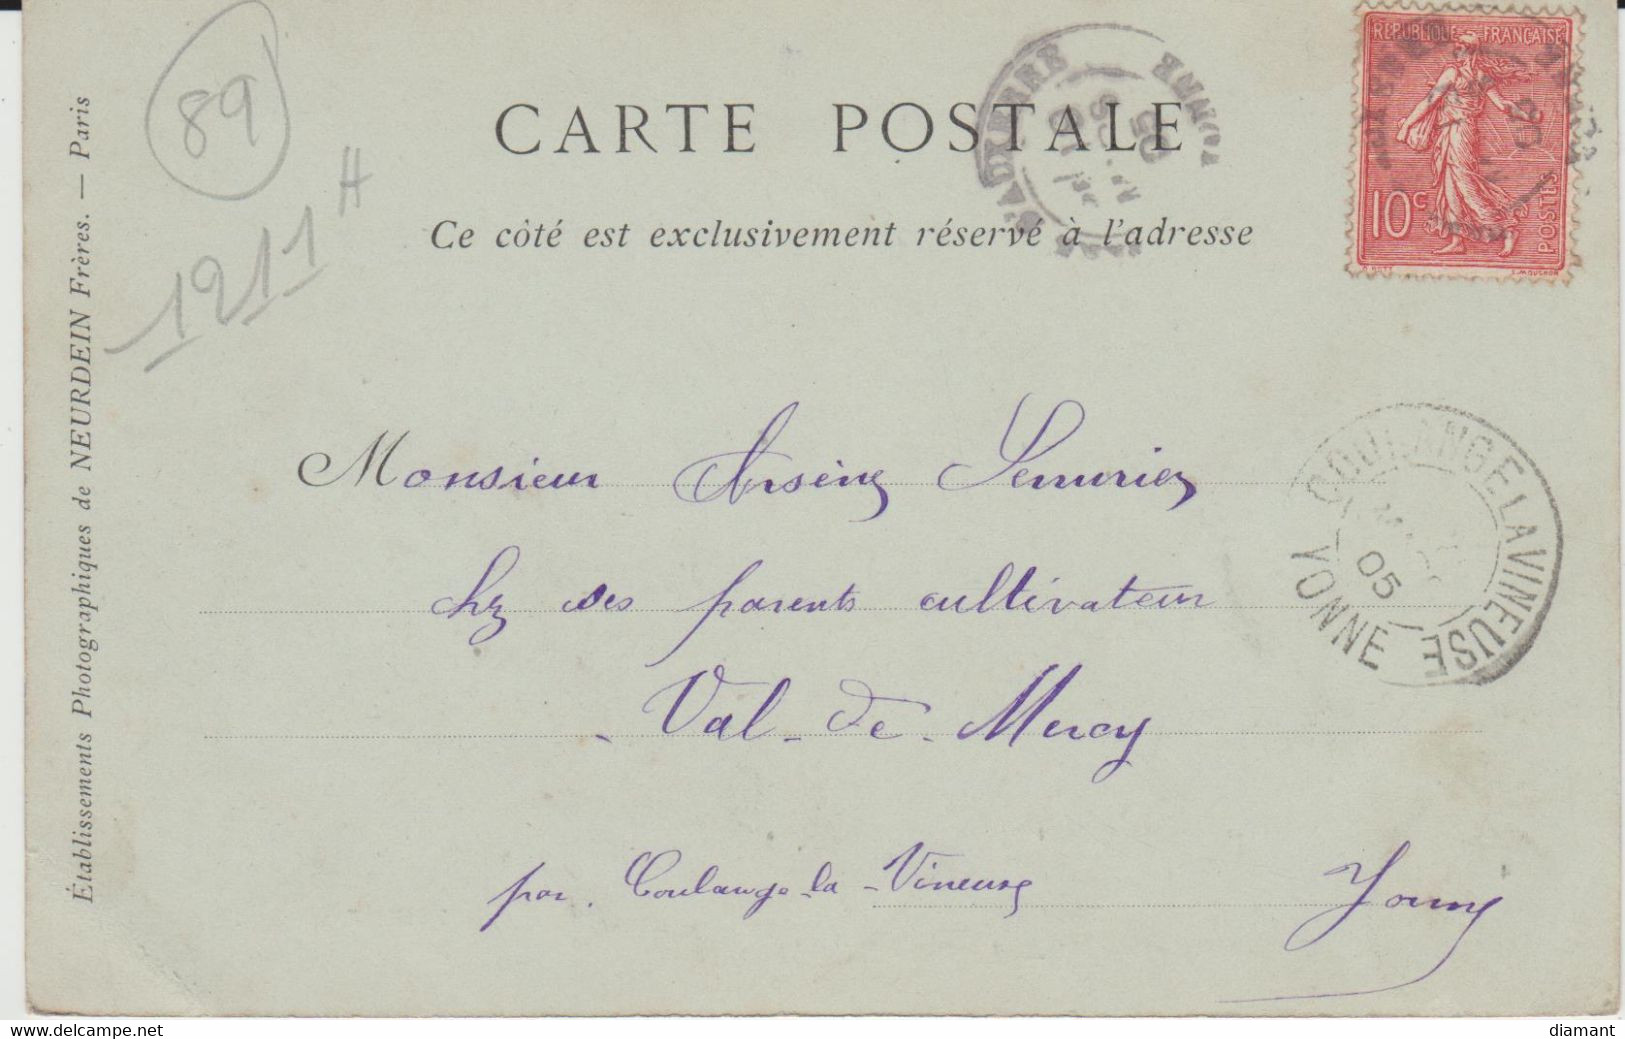 CARTE POSTALE
Ce côté est exclusivement réservé à l'adresse
Établissements Photographiques de NEURDEIN Frères. — Paris
89
1211 H
RÉPUBLIQUE FRANÇAISE
10 c
POSTES
AUXERRE
YONNE
05
COULANGE LA VINEUSE
05
YONNE
Monsieur Arsène
chz ses parents cultivateur
Val-de-Mercy
par. Coulange-la-Vineuse Yonne
diamant
© delcampe.net